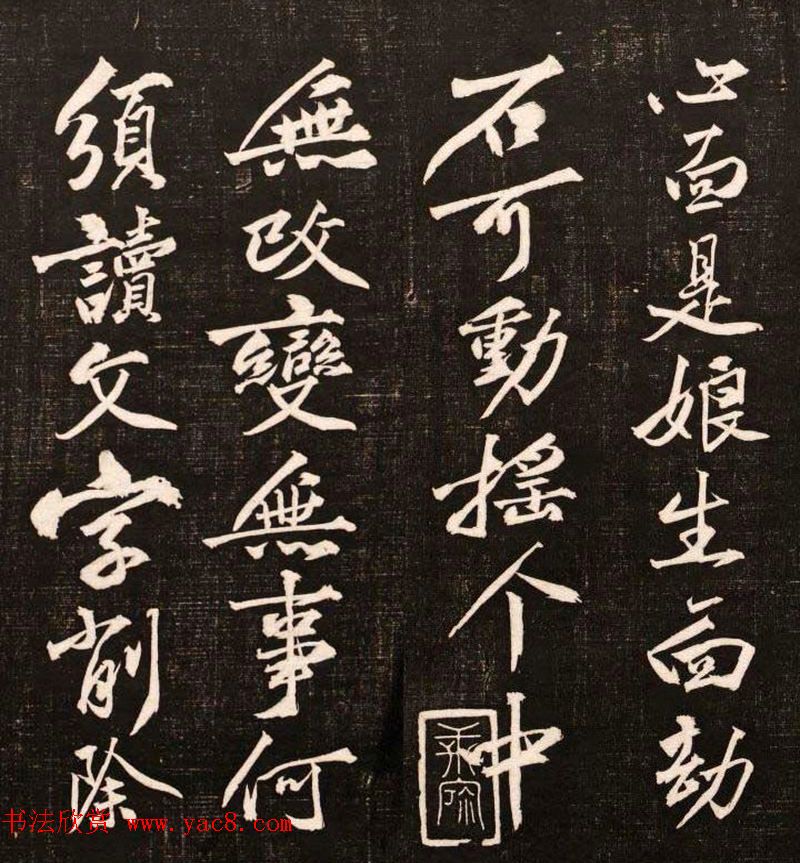 面是娘生面劫
石可動搖个中
無改變無事何
須讀文字削除
书法欣赏 www.yac8.com